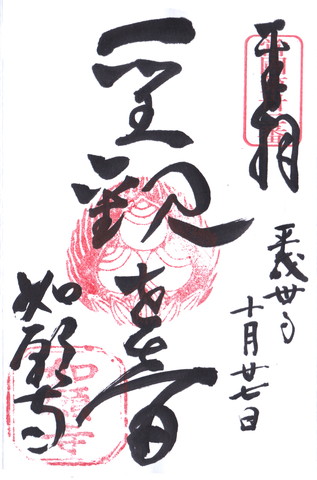 奉拝
平成丗年
十月廿七日
聖観世音
如願寺
如願寺